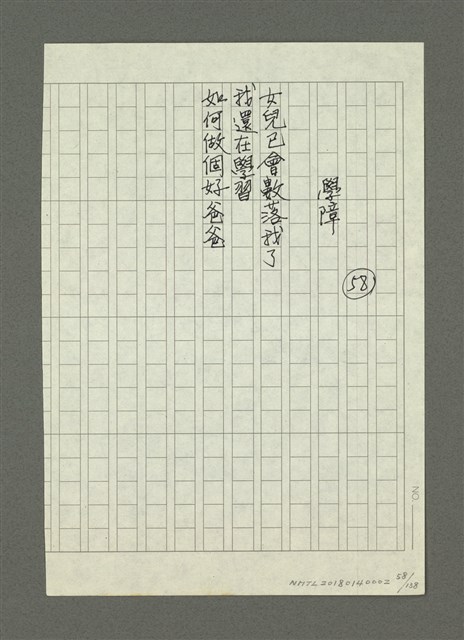 58
學障
女兒已會數落我了
我還在學習
如何做個好爸爸
NO.
NMTL20180140002 58/138